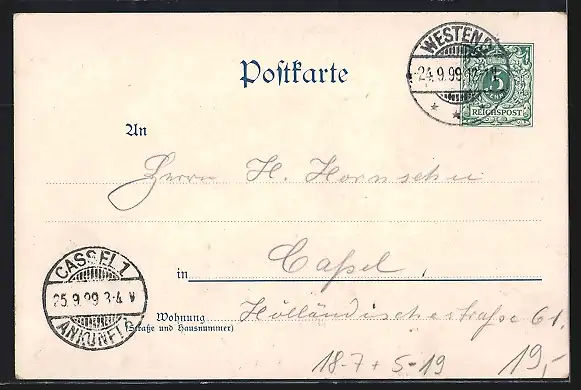 WESTEND
Postkarte
24.9.99
5
REICHSPOST
An
Herrn H. Hornschu
in Caßel,
CASSEL 1
25.9.99 3-4 V
ANKUNFT
Wohnung Holländischestraße 61.
(Straße und Hausnummer)
18-7 + 5-19 19,-